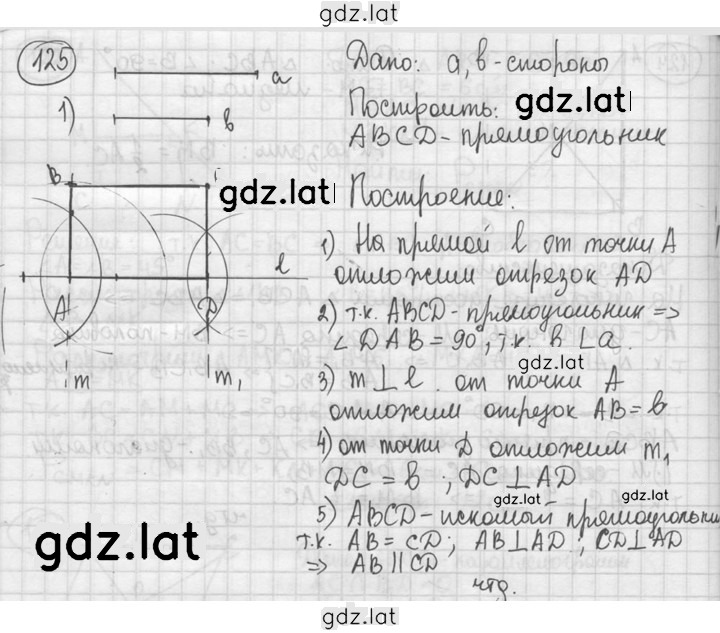 gdz.lat
125
a
1)
в
Дано: a, в-стороны
Построить: gdz.lat
ABCD-прямоугольник
B
gdz.lat
A
D
l
m
m₁
Построение:
1) На прямой l от точки A
отложим отрезок AD
2) т.к. ABCD-прямоугольник =>
∠DAB=90°, т.к. в⊥a.
gdz.lat
3) m⊥l от точки A
отложим отрезок AB=в
4) от точки D отложим m₁
DC=в ; DC⊥AD
gdz.lat gdz.lat
5) ABCD-искомый прямоугольник
т.к. AB=CD; AB⊥AD, CD⊥AD
=> AB||CD
чтд.
gdz.lat
gdz.lat